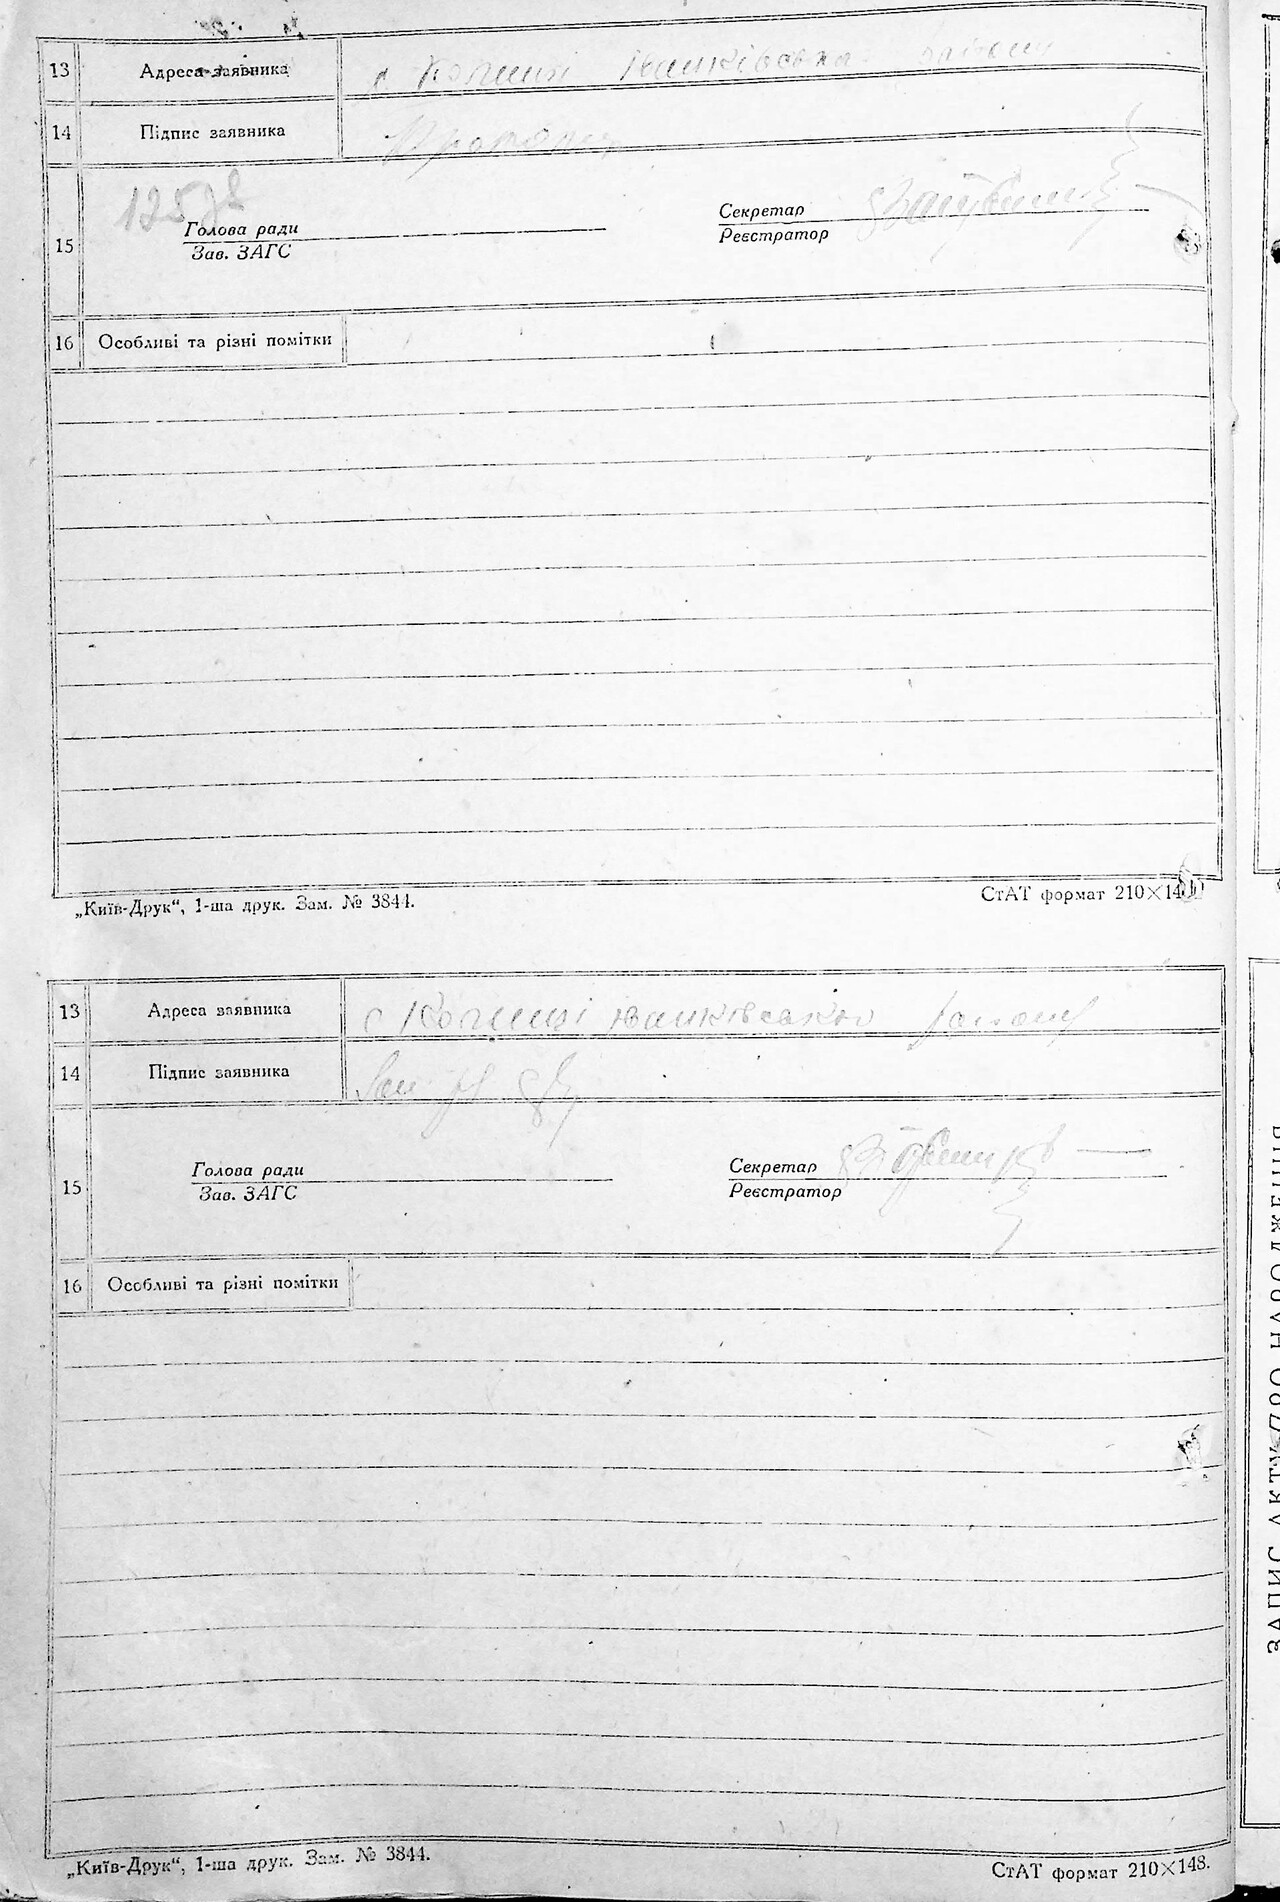 13 Адреса заявника с. Колинці Іванківська району
14 Підпис заявника
125
Секретар
Голова ради
Реєстратор
15
Зав. ЗАГС
16 Особливі та різні помітки
„Київ-Друк“, 1-ша друк. Зам. № 3844. СтАТ формат 210×148.
13 Адреса заявника с Іванківського району
14 Підпис заявника
Голова ради Секретар
15
Зав. ЗАГС Реєстратор
16 Особливі та різні помітки
„Київ-Друк“, 1-ша друк. Зам. № 3844. СтАТ формат 210×148.
ЗАПИС АКТУ ПРО НАРОДЖЕННЯ